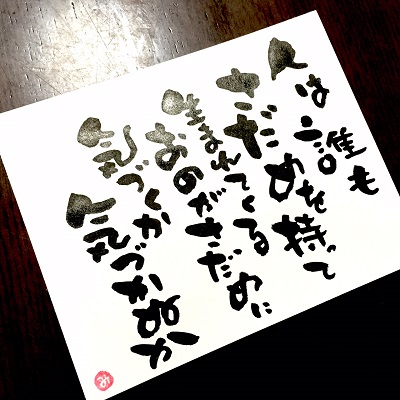 人は誰も
さだめを持って
生まれてくる
おのがさだめに
気づくか
気づかぬか
み